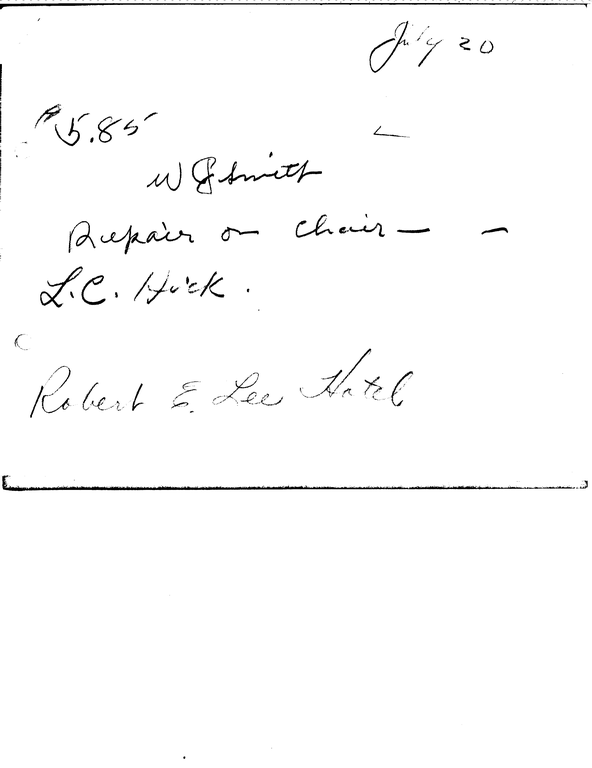 July 20
$5.85
W J Smith
Repair on chair — —
L.C. Hick.
Robert E. Lee Hotel